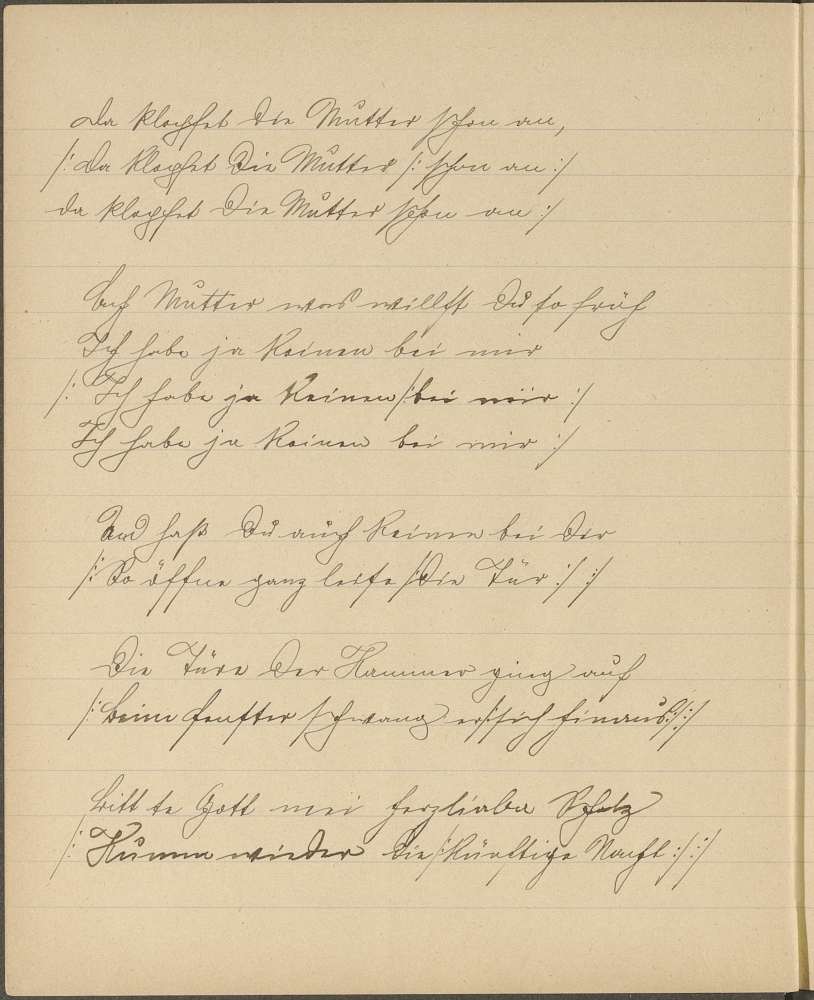 da klopfet die Mutter schon an,
/: da klopfet die Mutter /: schon an :/
da klopfet die Mutter schon an :/
Ach Mutter was willst du so früh
Ich habe ja keinen bei mir
/: Ich habe ja keinen /: bei mir :/
Ich habe ja keinen bei mir :/
Und haß du auch keinen bei der
/: So öffne ganz leise /: die Tür :/ :/
Die Türe der Kammer ging auf
/: beim Fenster schwang er /: sich hinaus :/ :/
bitt te Gott mei herzlieber Schatz
/: Kumm wieder die /: künftige Nacht :/ :/